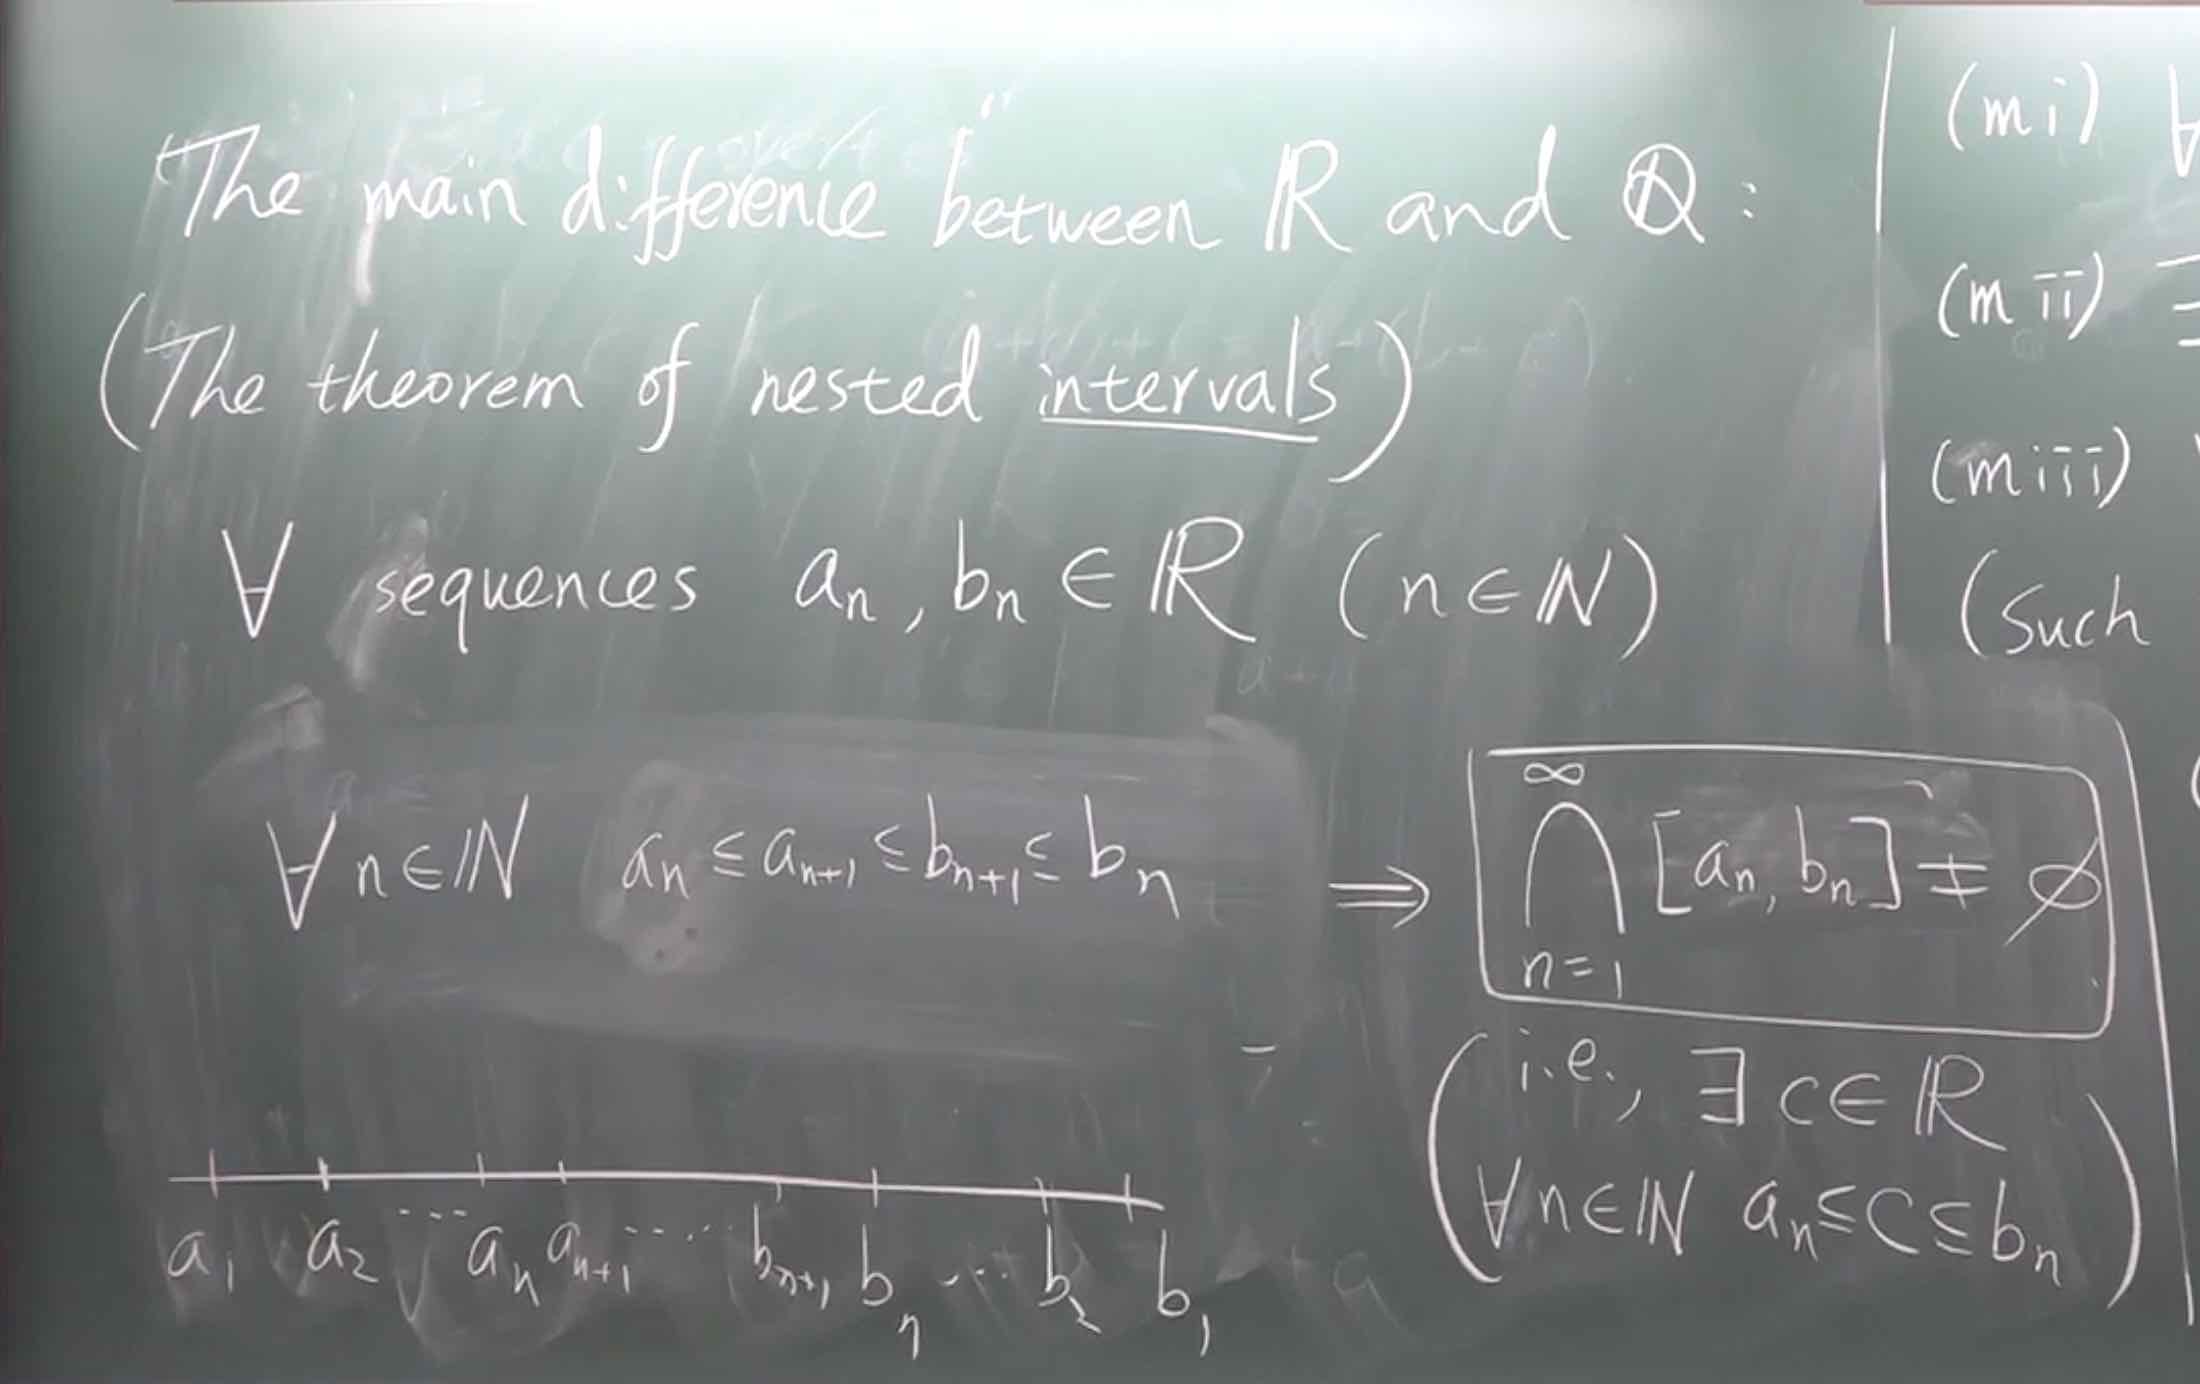 The main difference between ℝ and ℚ :
(The theorem of nested intervals)
∀ sequences aₙ, bₙ ∈ ℝ (n∈ℕ)
∀n∈ℕ aₙ ≤ aₙ₊₁ ≤ bₙ₊₁ ≤ bₙ ⇒ ∞ ⋂ n=1 [aₙ, bₙ] ≠ ∅
(i.e., ∃ c∈ℝ
∀n∈ℕ aₙ ≤ c ≤ bₙ)
a₁ a₂ --- aₙ aₙ₊₁ ····· bₙ₊₁ bₙ ··· b₂ b₁
(mi) ∀
(mii) ∃
(miii)
(Such